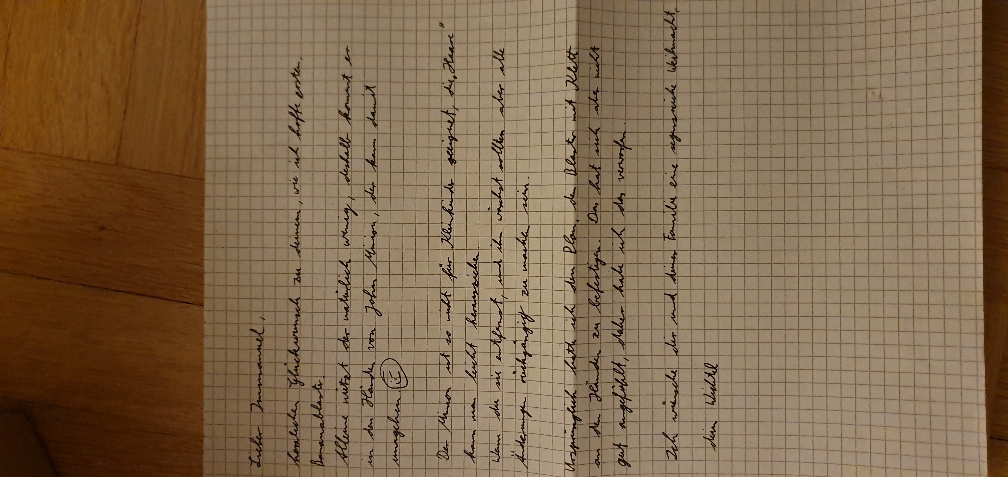 Lieber Immanuel,
herzlichen Glückwunsch zu deinem, wie ich hoffe ersten,
Bananablaster.
Alleine nützt der natürlich wenig, deshalb kommt er
in den Händen von John Minion, der kann damit
umgehen ☺
Der Minion ist so nicht für Kleinkinder geeignet, die „Haare"
kann man leicht herausziehen.
Wenn du sie entfernst, und ihn wäschst sollten aber alle
Änderungen rückgängig zu machen sein.
Ursprünglich hatte ich den Plan, den Blaster mit Klett
an den Händen zu befestigen. Das hat sich aber nicht
gut angefühlt, daher habe ich das verworfen.
Ich wünsche dir und deiner Familie eine segensreiche Weihnacht,
dein Wichtel